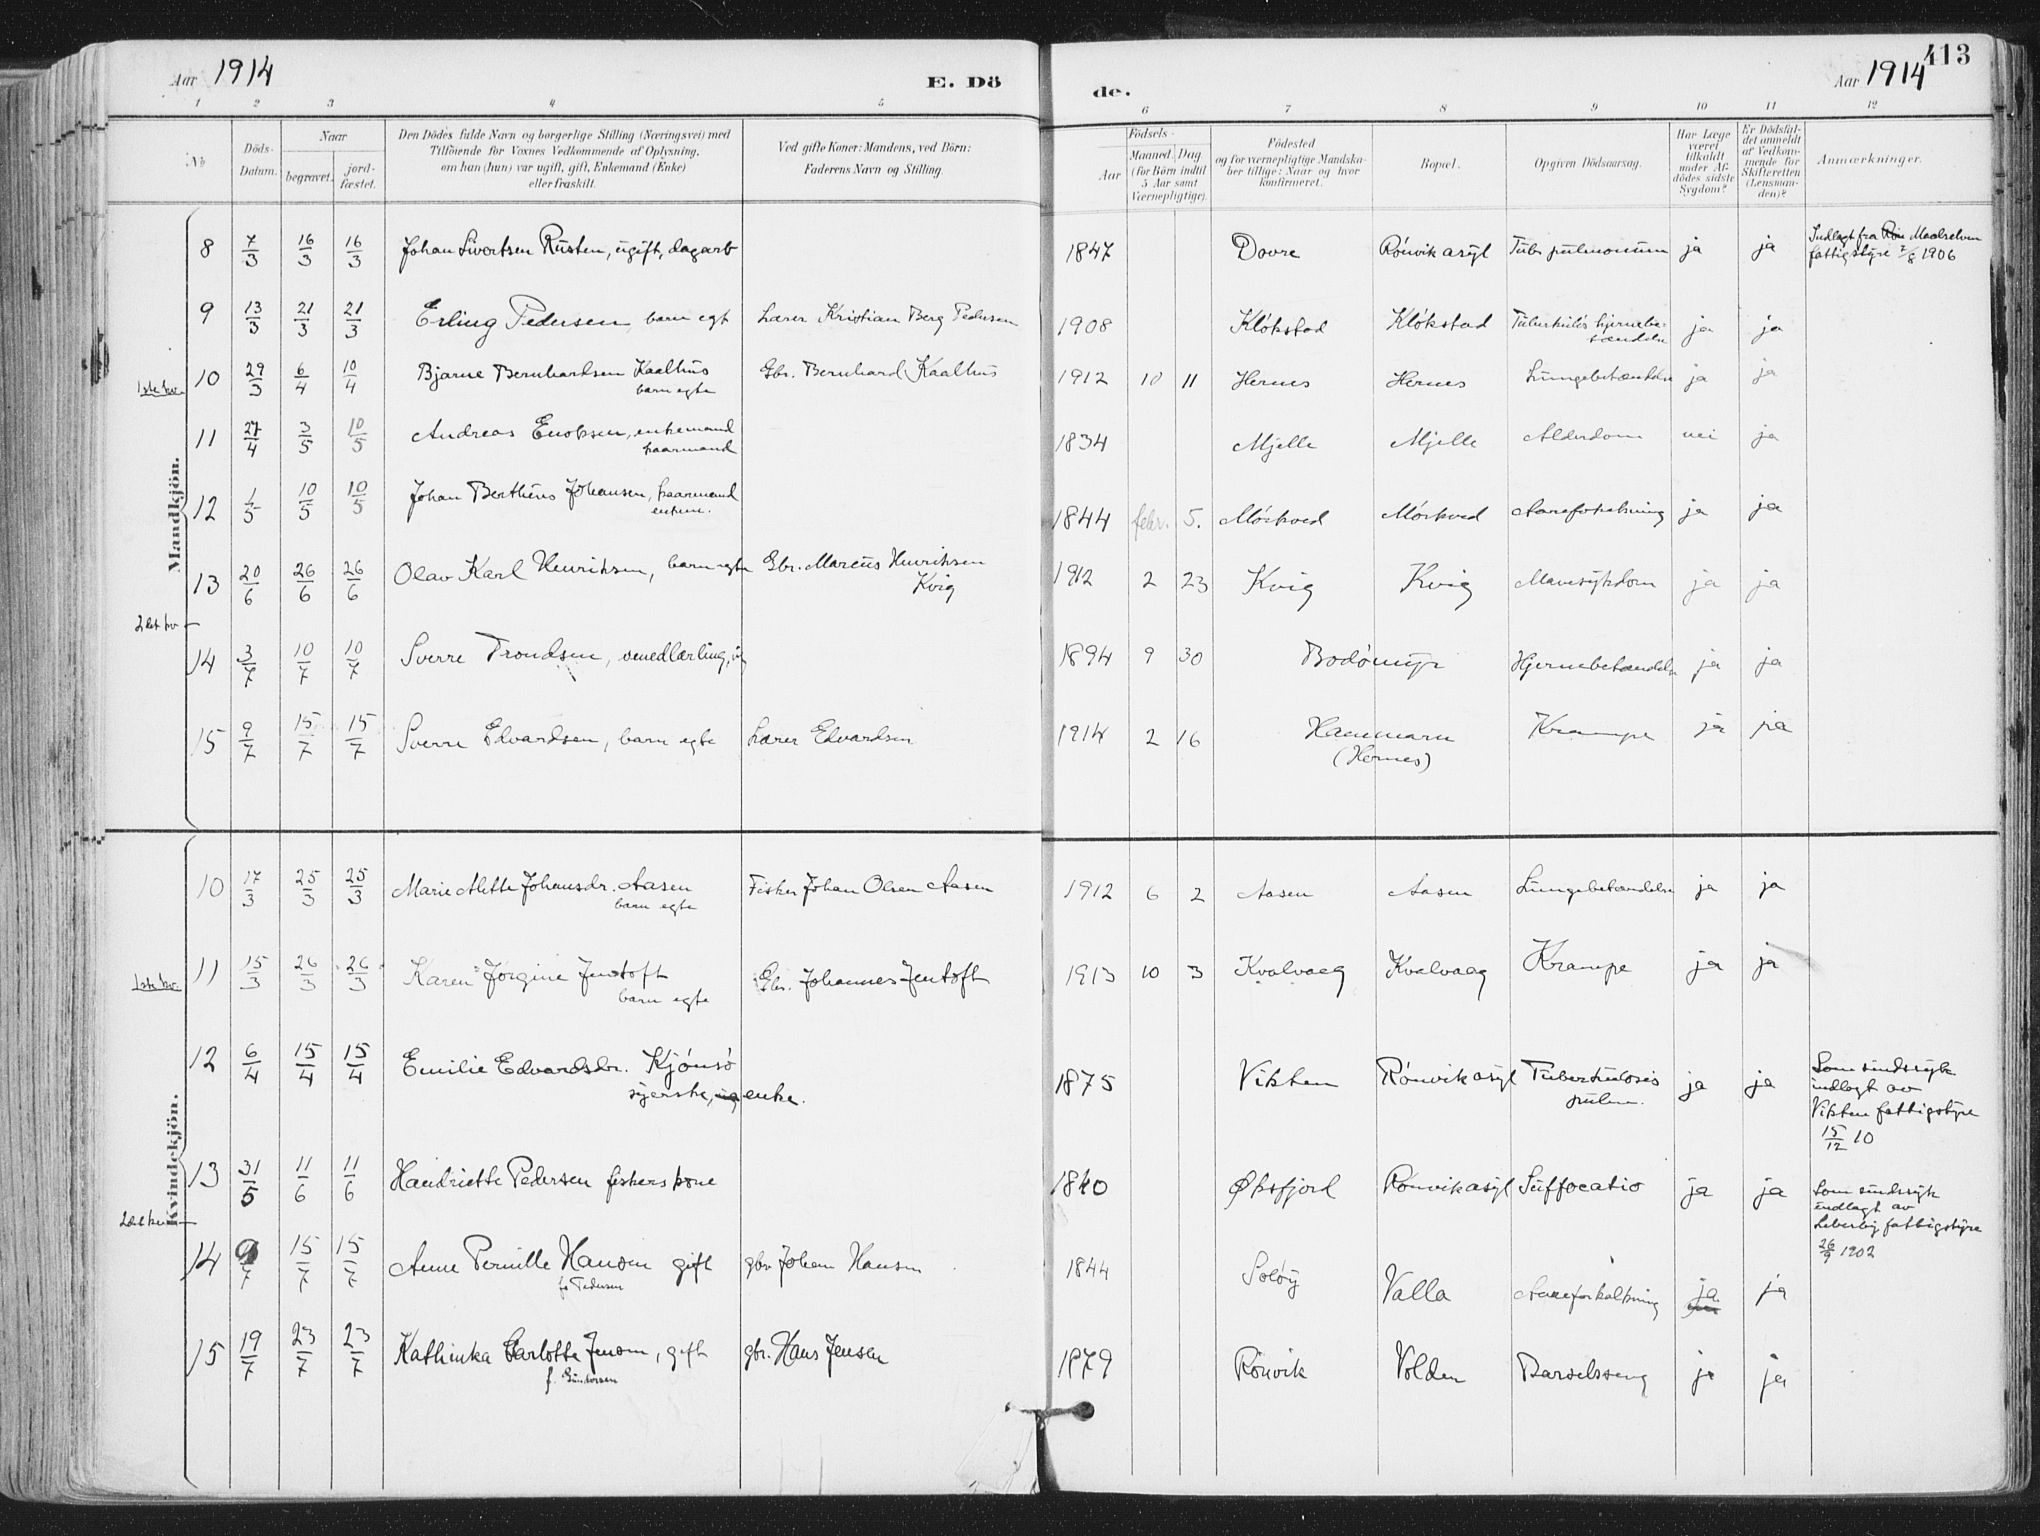 413
Aar 1914 E. Dö de. Aar 1914
1 2 3 4 5 6 7 8 9 10 11 12
№
Döds-Datum.
Naar
begravet.
jord-fæstet.
Den Dödes fulde Navn og borgerlige Stilling (Næringsvei) med
Tilföiende for Voxnes Vedkommende af Oplysning,
om han (hun) var ugift, gift, Enkemand (Enke)
eller fraskilt.
Ved gifte Koner: Mandens, ved Börn:
Faderens Navn og Stilling.
Födsels-
Aar
Maaned. Dag
(for Börn indtil
5 Aar samt
Værnepligtige).
Födested
og for værnepligtige Mandska-
ber tillige: Naar og hvor
konfirmeret.
Bopæl.
Opgiven Dödsaarsag.
Har Læge
været
tilkaldt
under Af-
dödes sidste
Sygdom?
Er Dödsfal-
det anmeldt
af Vedkom-
mende for
Skifteretten
(Lensman-
den)?
Anmærkninger.
Mandkjön.
8 7/3 16/3 16/3 Johan Sivertsen Rusten, ugift, dagarb 1847 Dovre Rönvik asyl Tub. pulmonum ja ja Indlagt fra Maalselven
fattigstyre 7/8 1906
9 13/3 21/3 21/3 Erling Pedersen, barn egt Lærer Kristian Berg Pedersen 1908 Klökstad Klökstad Tuberkulös hjernebe-
tændelse ja ja
1ste kv. 10 29/3 6/4 10/4 Bjarne Bernhardsen Kaalhus
barn egte Gbr. Bernhard Kaalhus 1912 10 11 Hernes Hernes Lungebetændelse ja ja
11 27/4 3/5 10/5 Andreas Enoksen, enkemand
kaarmand 1834 Mjelle Mjelle Alderdom nei ja
12 1/5 10/5 10/5 Johan Berthens Johansen, kaarmand
enkem. 1844 febr. 5. Mörkved Mörkved Aareforkalkning ja ja
13 20/6 26/6 26/6 Olav Karl Henriksen, barn egte Gbr. Marcus Henriksen
Kvig 1912 2 23 Kvig Kvig Mavesykdom ja ja
2det kv
14 3/7 10/7 10/7 Sverre Trondsen, 1894 9 30 Bodömyr Hjernebetændelse ja ja
15 9/7 15/7 15/7 Sverre Edvardsen, barn egte Lærer Edvardsen 1914 2 16 Hammarn
(Hernes) Krampe ja ja
Kvindekjön.
10 17/3 25/3 25/3 Marie Alette Johansdr. Aasen
barn egte Fisker Johan Olsen Aasen 1912 6 2 Aasen Aasen Lungebetændelse ja ja
1ste kv. 11 15/3 26/3 26/3 Karen Jörgine Jentoft
barn egte Gbr. Johannes Jentoft 1913 10 3 Kvalvaag Kvalvaag Krampe ja ja
12 6/4 15/4 15/4 Emilie Edvardsdr. Kjönsö
syerske, enke. 1875 Vikten Rönvik asyl Tuberkulosis
pulm. ja ja Som sindssyk
indlagt av
Vikten fattigstyre
15/12 10
13 31/5 11/6 11/6 Handriette Pedersen fiskers kone 1840 Øksfjord Rönvik asyl Suffocatio ja ja Som sindssyk
indlagt av
fattigstyre
26/9 1902
2det kv
14 9/7 15/7 15/7 Anne Pernille Hansen gift
f. Pedersen gbr Johan Hansen 1844 Solöy Valla Aareforkalkning ja ja
15 19/7 23/7 23/7 Kathinka Carlotte Jensen, gift
f. Gundersen gbr. Hans Jensen 1879 Rönvik Volden Barselseng ja ja